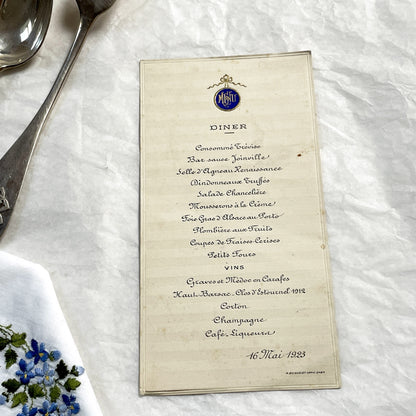 MENU
DINER
Consommé Trévise
Bar sauce Joinville
Selle d'Agneau Renaissance
Dindonneaux Truffés
Salade Chancelière
Mousserons à la Crème
Foie Gras d'Alsace au Porto
Plombière aux Fruits
Coupes de Fraises-Cerises
Petits Fours
VINS
Graves et Médoc en Carafes
Haut-Barsac, Clos d'Estournel 1912
Corton
Champagne
Café, Liqueurs
16 Mai 1923